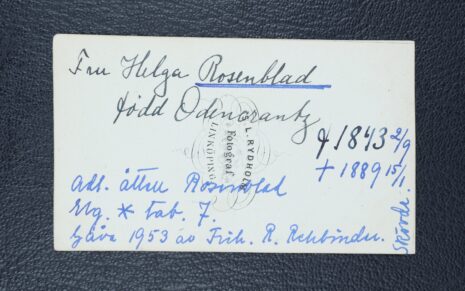 Fru Helga Rosenblad
född Odencrantz
L. RYDHOLM
Fotograf
LINKÖPING
* 1843 2/9
+ 1889 15/1
Adl. ätten Rosenblad
* tab. 7.
Gåva 1953 av Frih. R. Rehbinder.
Skövde.